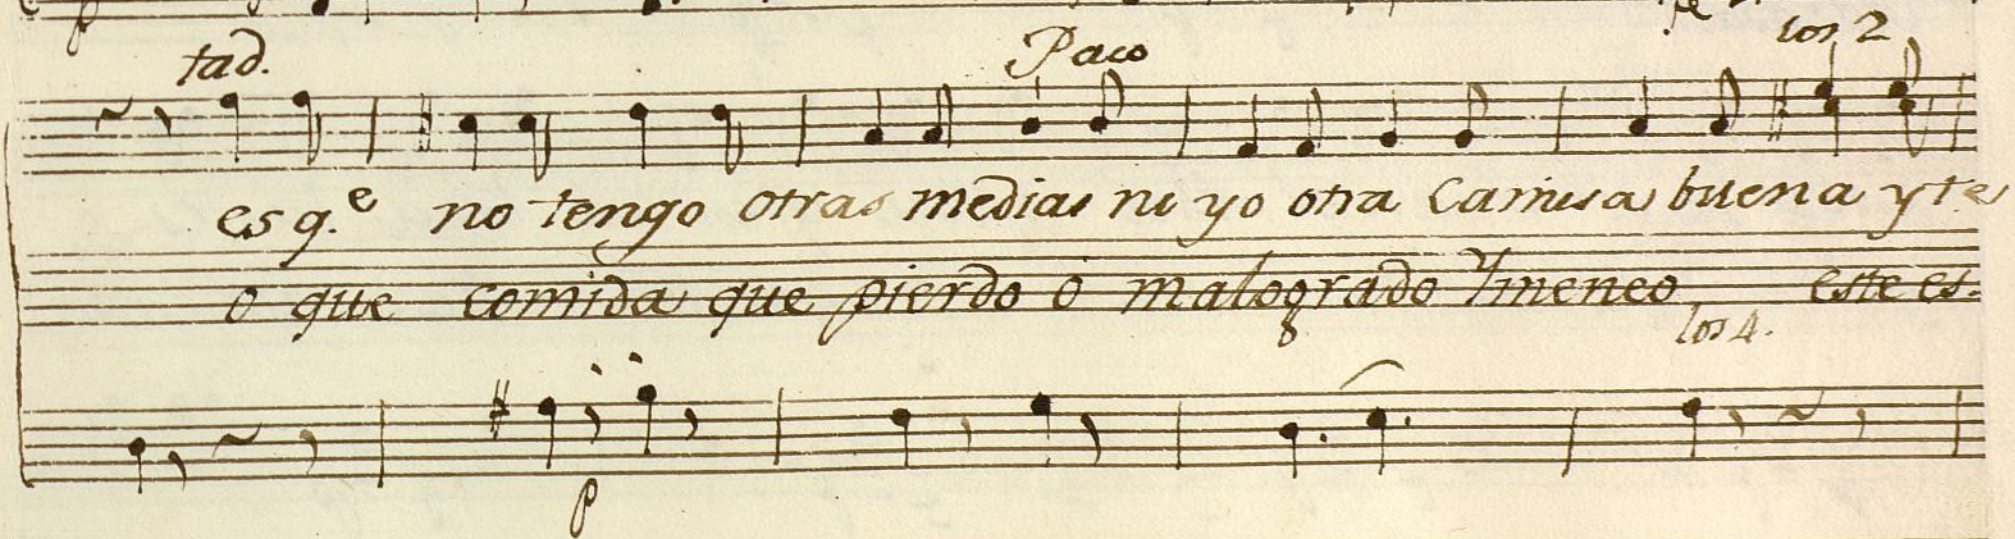 p
tad. Paco los 2
es q.e no tengo otras medias ni yo otra Camisa buena y tes
o que comida que pierdo o malogrado Ymeneo este es.
los 4.
p